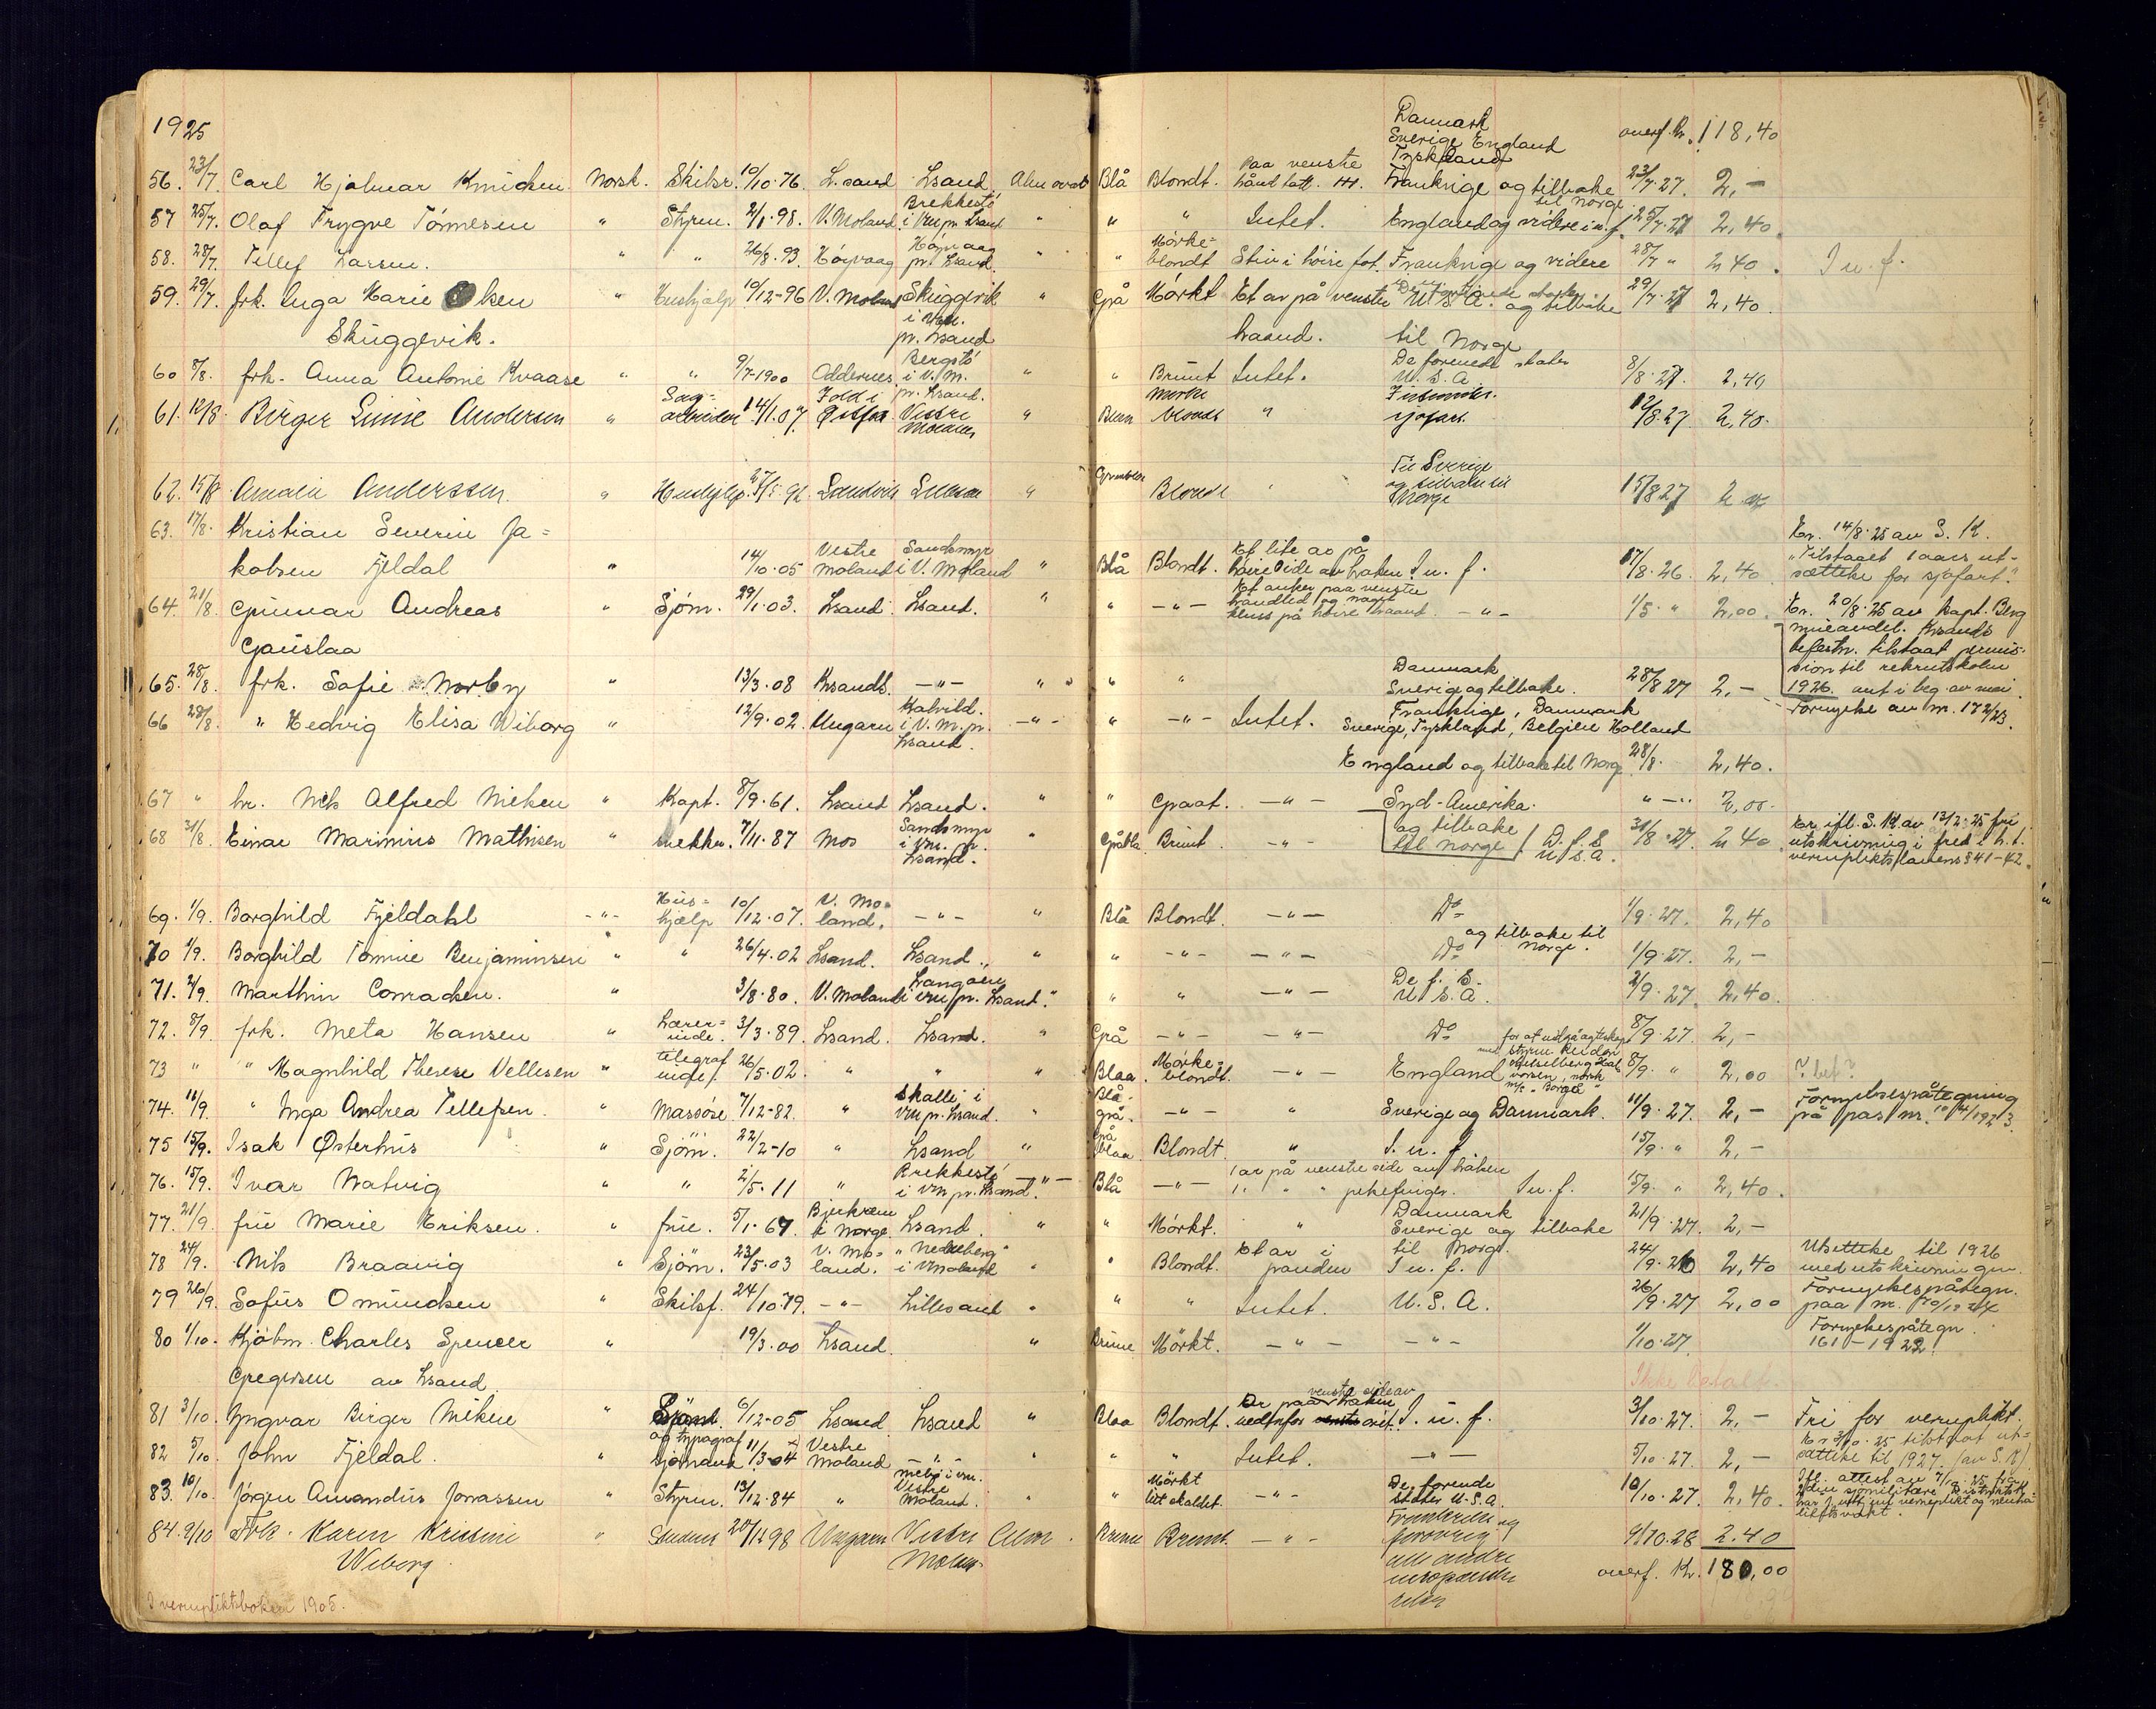 1925
overf. Kr. 118,40
56. 23/7. Carl Hjalmar Knudsen. Norsk. Skibsr. 10/10.76. L.sand Lsand. Alm. oval Blå Blondt. Paa venste hånd tatt. Danmark Sverige England Tyskland Frankrige og tilbake til Norge 23/7.27. 2,-
57 25/7. Olaf Trygve Tönnesen " Styrm. 2/1.98. V. Moland Brekkestö i Vm pr. Lsand " " " Intet. England og videre i u. f. 25/7.27 2,40.
58. 28/7. Tellef Larsen. " " 26/8.93. Höyvaag Höyvaag pr. Lsand. " " Mörke= blondt Stiv i höire fot. Frankrige og videre 28/7 " 2,40. I u. f.
59. 29/7. frk. Inga Marie Olsen " Hushjælp 10/12-96 V. Moland Skuggevik " Grå Mörkt Et ar på venstre De forenede stater U.S.A. og tilbake 29/7.27 2,40.
Skuggevik. i Vm. pr. Lsand haand. til Norge
60 8/8. frk. Anna Antonie Kvaase " " 9/7-1900 Oddernes Bergstö i V.M. pr. Lsand. " " Brunt Intet. De forenede stater U.S.A. 8/8.27. 2,40
61. 12/8. Birger Linie Andersen " Sag= arbeider 14/1.07. Vestre Moland " Blaa Mörke blondt " sjøfart. 12/8.27 2,40.
62. 15/8 Amalie Anderssen. " Hushjelp. Lillesand " Blondt " Til Sverige og tilbake til Norge 15/8 27 2,40
63. 17/8. Kristian Severin Ja=
kobsen Fjeldal " 14/10.05 Vestre Moland Sandsmyr i V. Moland " Blå Blondt. Et lite ar på höire side av haken I u. f. 17/8.26. 2,40 Kr. 14/8.25 av S. K. "Tilstaaet 1 aars ut-sættelse for sjøfart."
64. 21/8. Gunnar Andreas " Sjöm. 29/1.03. Lsand. Lsand. " " -"- Et anker paa venstre handled og paa höire haand. -"- 1/5. " 2,00. Kr. 20/8.25 av Kapt. Berg mineavdel. Krsands befæstn. tilstaat permis-sion til rekrutskolen 1926. ant i beg. av mai.
Gauslaa
65. 28/8. frk. Sofie Norby " 13/3.08 Krsands. -"- " " " Danmark Sverige og tilbake. 28/8 27 2,-
66 28/8. " Hedvig Elisa Wiborg " 12/9.02. Ungarn Kalvild. i V. M. pr. Lsand. -"- " -"- Intet. Frankrige, Danmark Sverige, Tyskland, Belgien Holland England og tilbake til Norge 28/8. 2,40. Fornyelse av nr. 172/23.
67 " hr. Nils Alfred Nielsen " Kapt. 8/9.61. Lsand Lsand. " " Graat. -"- Syd-Amerika. og tilbake til Norge " -" 2,00.
68 31/8. Einar Marinius Mathisen " 7/11.87 Mos Sandsmyr i Vm. pr. Lsand. " Gråblå Brunt. -"- D. f. S U.S.A. 31/8.27. 2 40. Er ifl. S. K. av 13/2.25 fri utskrivning i fred i h. t. vernepliktslovens § 41-42.
69. 1/9. Borghild Fjeldahl -"- Hus= hjælp 10/12.07. V. Mo= land. -"- " Blå Blondt. -"- Do 1/9.27. 2,40
70 1/9. Borghild Tomine Benjaminsen " " 26/4.02 Lsand. Lsand. " " -"- -"- Do og tilbake til Norge. 1/9.27. 2,-
71. 2/9. Marthin Conradsen. " 3/8.80. V. Moland Langoen i vm pr. Lsand. " " " -"- De f. S. U.S.A. 2/9.27. 2,40.
72. 8/9 frk. Meta Hansen " Lærer= inde. 3/3.89. Lsand. Lsand. " Grå -"- -"- Do 8/9.27. 2,-
73 " " Magnhild Therese Vellesen " telegraf 26/5.02. " " " Blaa. Mörke= blondt. -"- England for at indgå ægteskap med styrm. norsk m/s "Borgli" 8/9. " 2,00
74. 11/9. " Inga Andrea Tellefsen. " Massöse. 7/12-82. " Skalle i Vm pr. Lsand. " Blå-grå. -"- " Sverige og Danmark. 11/9.27. 2,- Fornyelsespåtegning på pas nr. 104/1923.
75 15/9. Isak Østerhus " Sjöm. 22/2-10 " Lsand " Grå blaa Blondt. " I. u. f. 15/9. " 2,-
76. 15/9. Ivar Natvig " " 2/5.11 " Brekkestö i Vm pr. Lsand. -"- Blå -"- 1 ar på venstre side av haken 1 " " " pekefinger. I u. f. 15/9. " 2,40.
77. 21/9. frue Marie Eriksen. " frue. 5/1.67 i Norge Lsand. " " Mörkt. " Danmark Sverige og tilbake til Norge. 21/9.27. 2,-
78 24/9. Nils Braavig " Sjöm. 23/5.03 V. Mo= land. i V Moland " " Blondt. Et ar i panden I u. f. 24/9.26 2,40 Utsettelse til 1926 med utskrivningen.
79 26/9. Sofus Omundsen " Skibsf. 24/10.79. -"- Lillesand " " " Intet. U.S.A. 26/9.27 2,00 Fornyelsespåtegn. paa nr.
80 1/10. Kjöbm. Charles Spencer " 19/3.00 Lsand. " Brune Mörkt. -"- -"- 1/10.27. Fornyelsespåtegn. 161-1922.
Gregersen av Lsand. Ikke betalt.
81 3/10. Yngvar Birger Nielsen " Sjömand. 6/12-05 Lsand Lsand " Blaa Blondt. Ar paa venstre side av haken nedenfor öret. I. u. f. 3/10.27. 2,- Fri for verneplikt.
82 5/10 John Fjeldal. " og typograf sjömand 11/3-04 Vestre Moland -"- " " " Intet. -"- 5/10.27. 2,- Kr 3/10.25 tilstaat ut-sættelse til 1927. (av S.K)
83. 10/10. Jörgen Amandus Jonassen " Styrm. 13/12.84 " Vestre Moland. " " Mörkt litt skaldet. -"- De forende stater U.S.A. 10/10.27. 2,40. Ifl. attest av 7/10.25 fra
84. 9/10 Frk. Karen Kristine " 20/12 98 Ungarn Vestre Moland. Alm. Brune Brunt. -"- Frankrike og alle andre europæiske 9/10.28 2.40
Wiborg. overf. Kr. 180,00
I vernepliktsboken 1905.